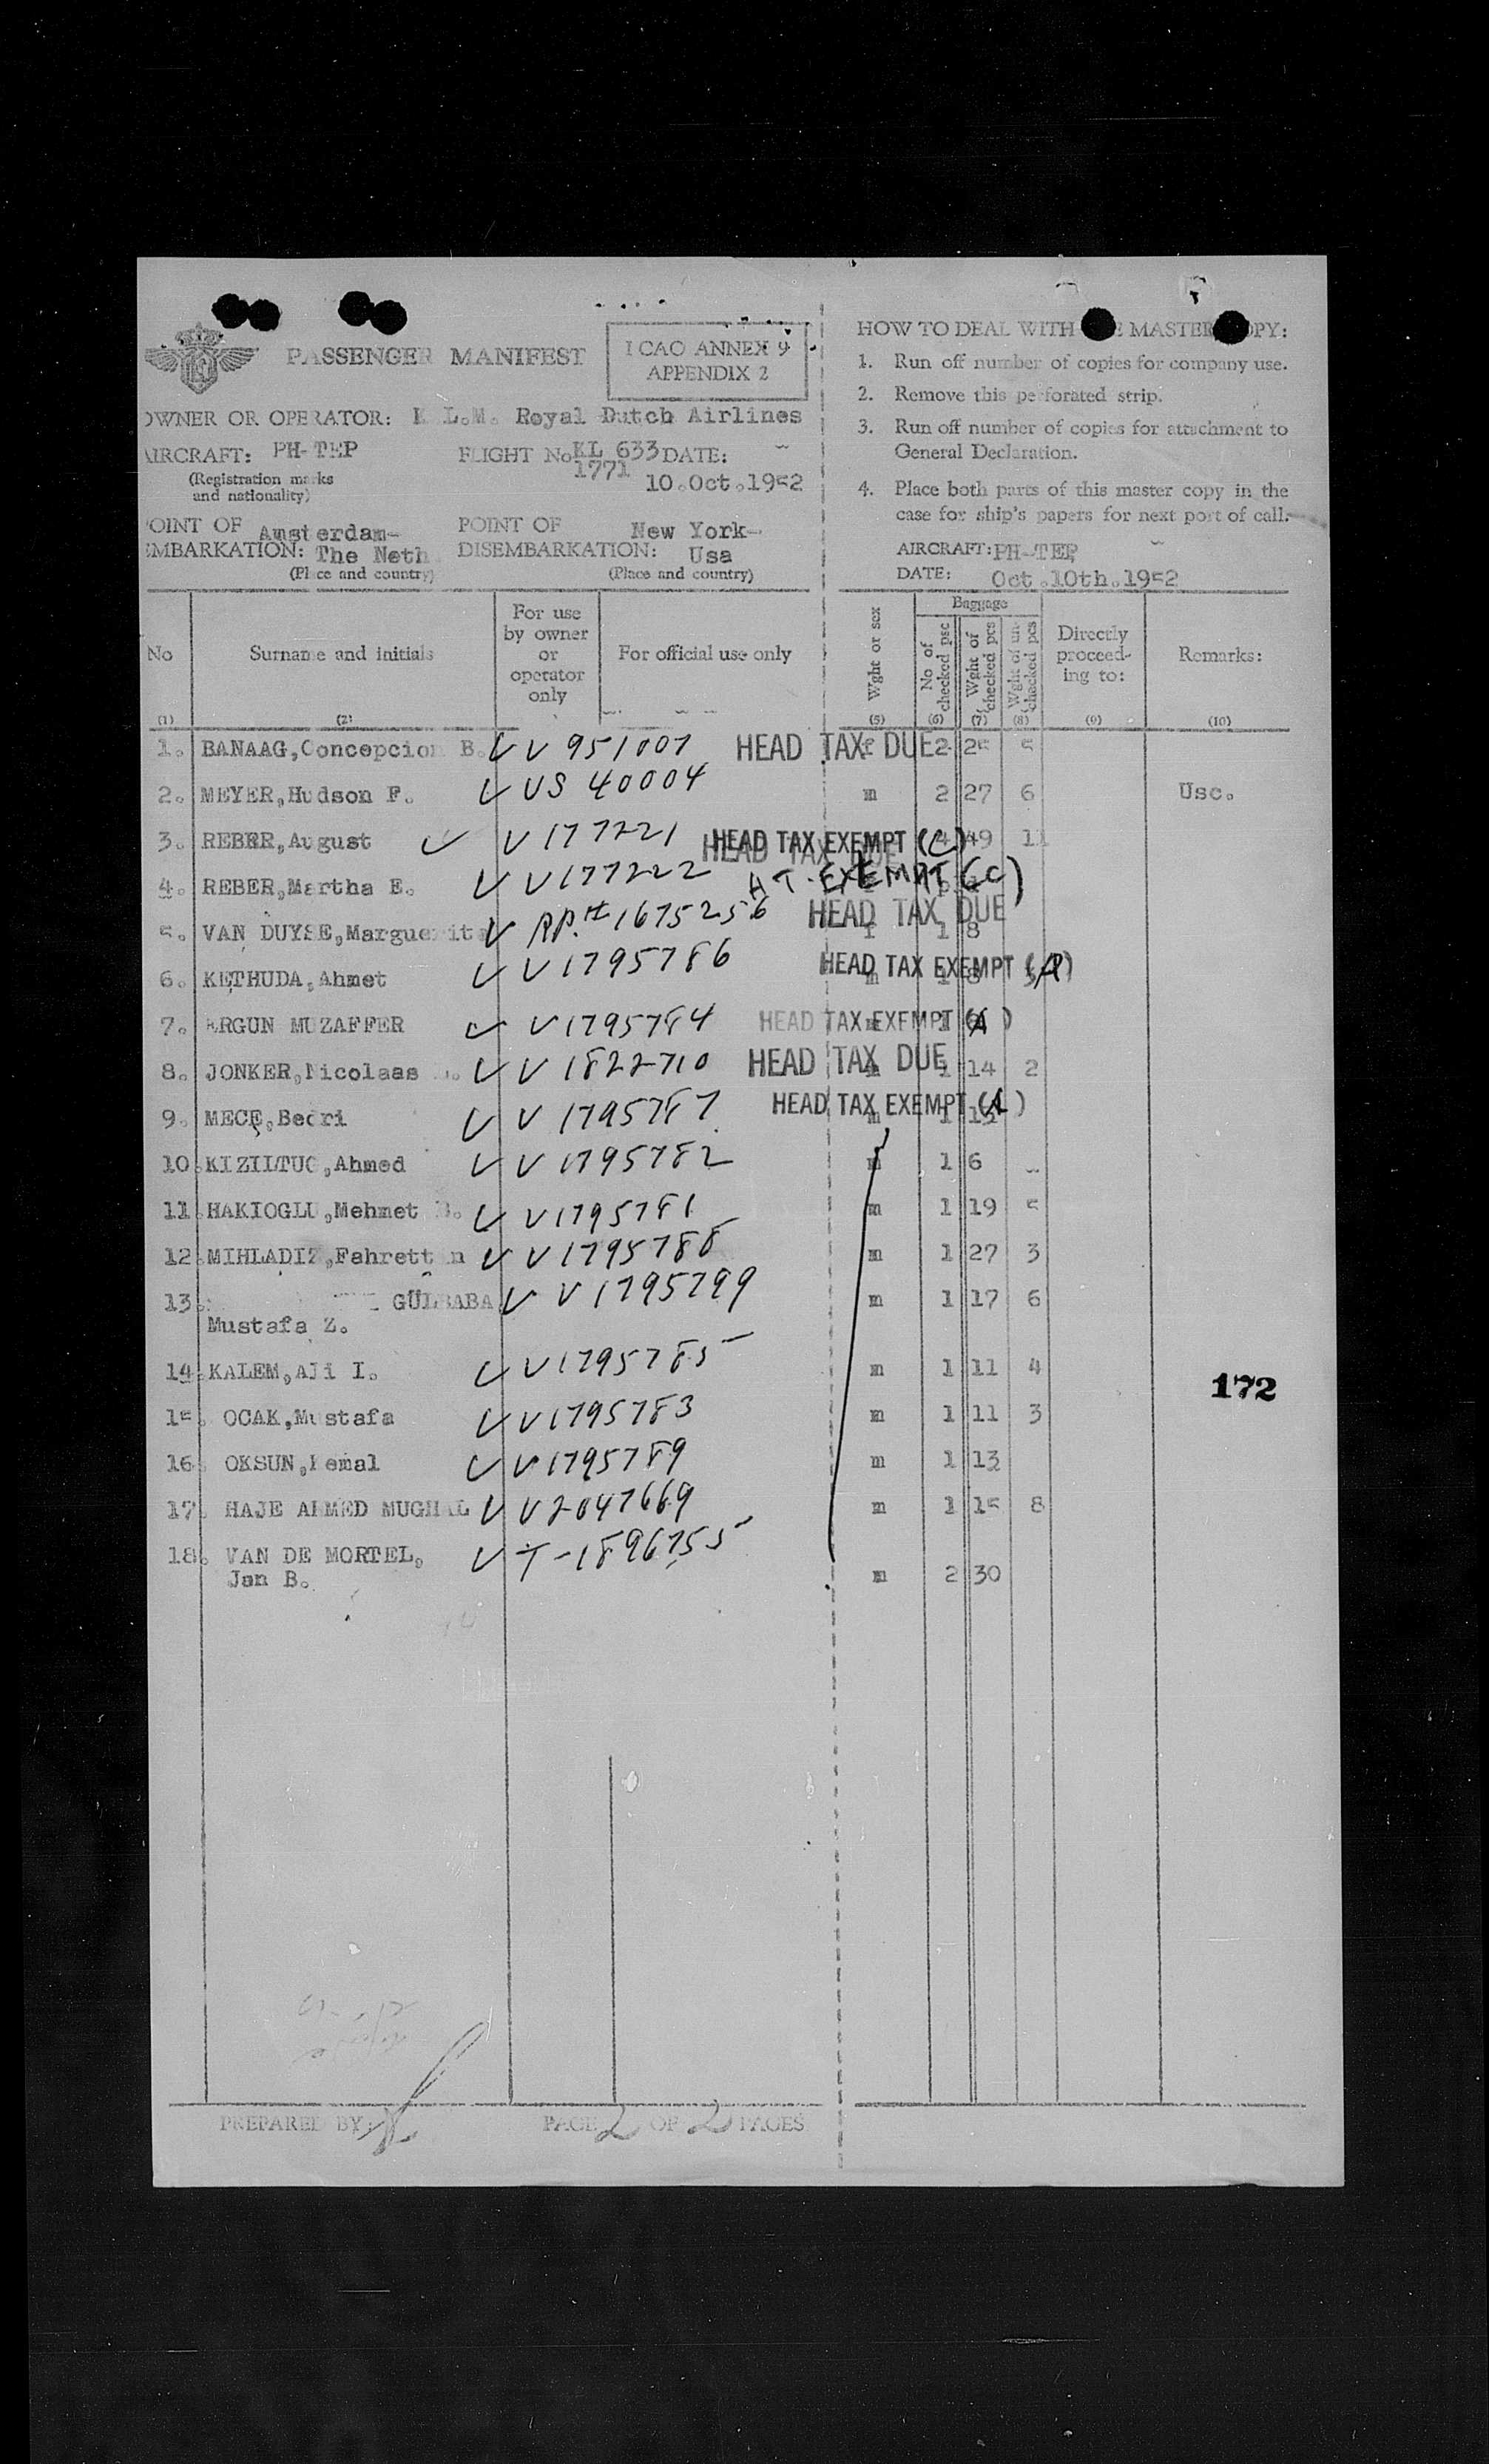 PASSENGER MANIFEST
ICAO ANNEX 9
APPENDIX 2
OWNER OR OPERATOR: K L.M. Royal Dutch Airlines
AIRCRAFT: PH-TEP
(Registration marks
and nationality)
FLIGHT No KL 633
1771
DATE:
10.Oct.1952
POINT OF
EMBARKATION:
Amsterdam-
The Neth
(Place and country)
POINT OF
DISEMBARKATION:
New York-
Usa
(Place and country)
HOW TO DEAL WITH MASTER OPY:
1. Run off number of copies for company use.
2. Remove this perforated strip.
3. Run off number of copies for attachment to
General Declaration.
4. Place both parts of this master copy in the
case for ship's papers for next port of call.
AIRCRAFT: PH-TEP
DATE: Oct.10th.1952
No
(1)
Surname and initials
(2)
For use
by owner
or
operator
only
For official use only
Wght or sex
(5)
Baggage
No of
checked psc
(6)
Wght of
checked pcs
(7)
Wght of un-
checked pcs
(8)
Directly
proceed-
ing to:
(9)
Remarks:
(10)
1. BANAAG,Concepcion B. V 951007 HEAD TAX DUE 2 25 5
2. MEYER,Hudson F. US 40004 m 2 27 6 Usc.
3. REBER,August V 177221 HEAD TAX EXEMPT (C) 4 49 11
HEAD TAX DUE
4. REBER,Martha E. V177222 H T. EXEMPT (C)
5. VAN DUYSE,Marguerite PP.# 1675256 HEAD TAX DUE f 1 8
6. KETHUDA,Ahmet V1795786 HEAD TAX EXEMPT (A) m 1 8
7. ERGUN MUZAFFER V1795784 HEAD TAX EXEMPT (A)
8. JONKER,Nicolaas V 1822710 HEAD TAX DUE 1 14 2
9. MECE,Bedri V 1795787 HEAD TAX EXEMPT (A) m 1 15
10. KIZILTUG,Ahmed V 1795782 m 1 6
11. HAKIOGLU,Mehmet B. V1795781 m 1 19 5
12. MIHLADIZ,Fahrettin V1795788 m 1 27 3
13. GÜLBABA V 1795799 m 1 17 6
Mustafa Z.
14. KALEM,Ali I. V1795785 m 1 11 4
172
15. OCAK,Mustafa V1795783 m 1 11 3
16. OKSUN,Kemal V1795789 m 1 13
17. HAJE AHMED MUGHAL V2047669 m 1 15 8
18. VAN DE MORTEL, T-1896755
Jan B. m 2 30
PREPARED BY:
PAGE 2 OF 2 PAGES